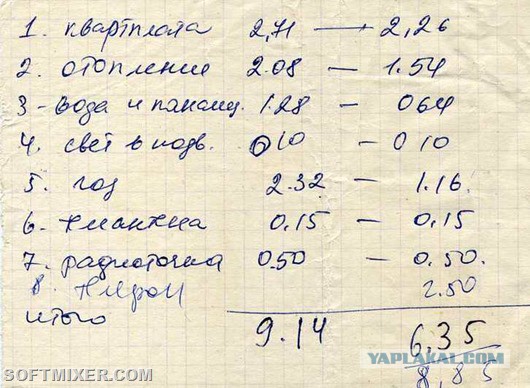 1. квартплата 2,71 → 2,26
2. отопление 2.08 — 1.54
3 - вода и канализ. 1.28 — 064
4. свет в подв. 010 — 010
5. газ 2.32 — 1.16.
6. 0.15 — 0.15
7. радиоточка 0.50 — 0.50.
8. 2.50
итого 9.14 6,35
8,85
YAPLAKAL.COM
SOFTMIXER.COM